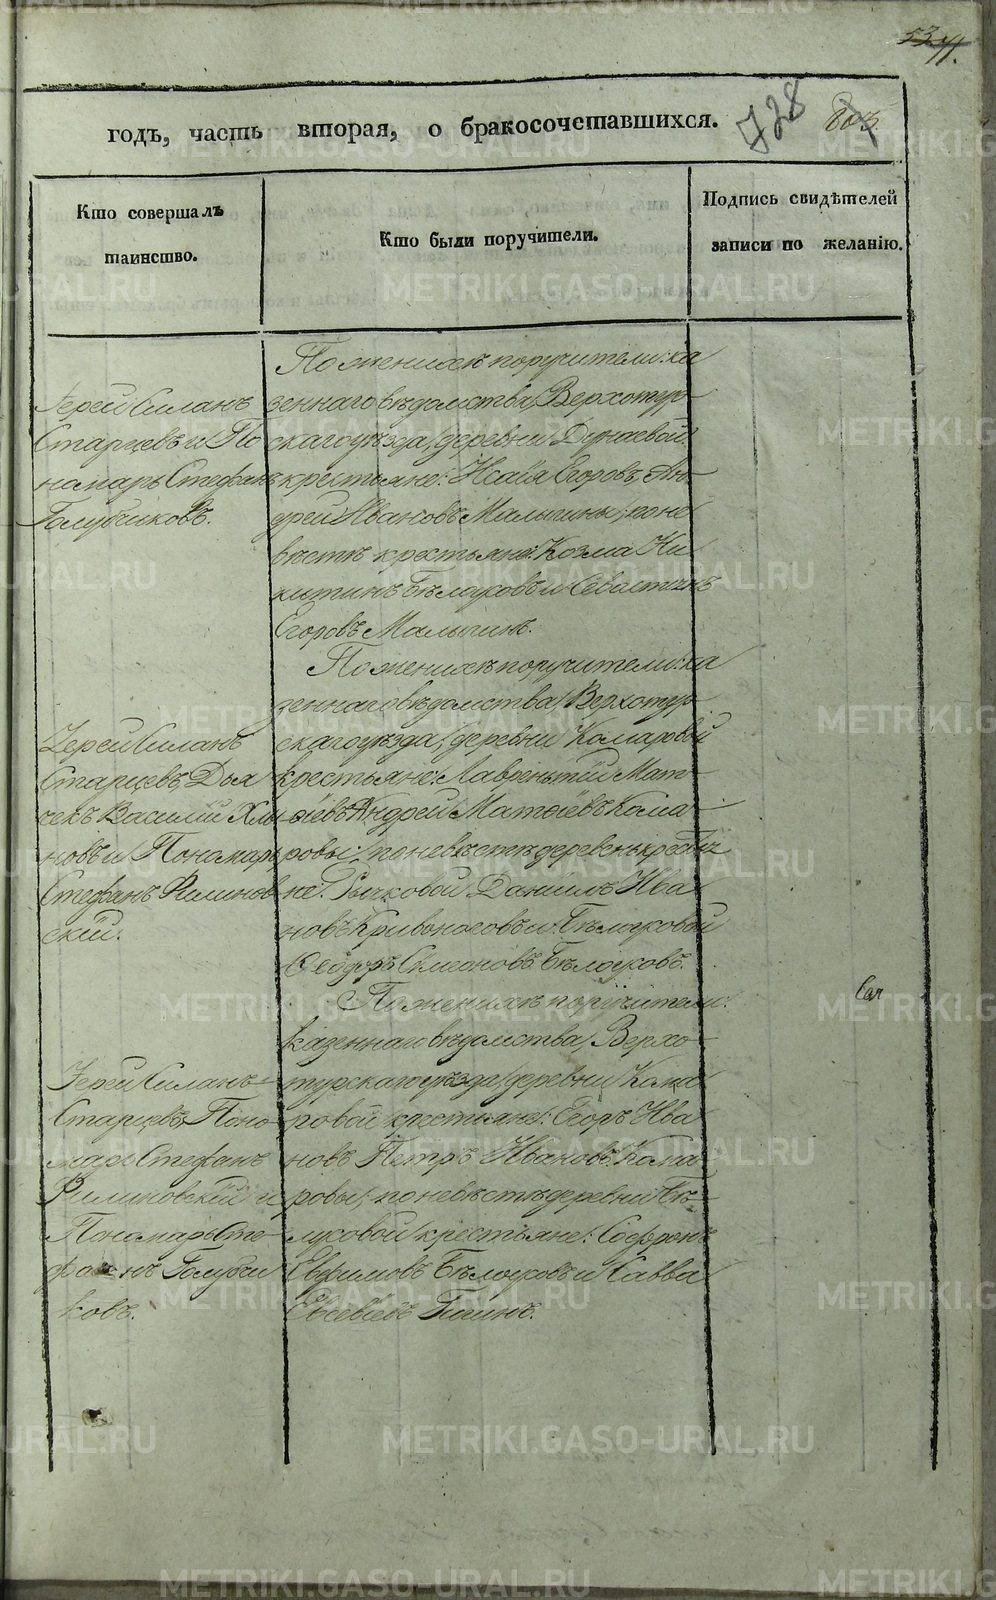 728
годъ, часть вторая, о бракосочетавшихся.
Кто совершалъ таинство.
Кто были поручители.
Подпись свидѣтелей записи по желанію.
Іерей Силанъ
Старцевъ и По
номарь Стефанъ
Голубчиковъ.
По женихѣ поручители: ка
зеннаго вѣдомства, Верхотур-
скаго уѣзда, деревни Дунаевой
крестьяне: Исаія Егоровъ, Ан-
дрей Ивановъ Малыгины; по не
вѣстѣ крестьяне: Козма Ни
китинъ Бѣлоусовъ и Севастіянъ
Егоровъ Малыгинъ.
Іерей Силанъ
Старцевъ, Дья
чекъ Василій Хлы
новъ и Пономарь
Стефанъ Филинов
скій.
По женихѣ поручители: ка
зеннаго вѣдомства, Верхотур-
скаго уѣзда, деревни Комаровой
крестьяне: Лаврентій Мат-
ѳіевъ, Андрей Матѳіевъ Кома
ровы; по невѣстѣ деревень крестья
не: Рычковой Даніилъ Ива
новъ Кривоноговъ и Бѣлоусовой
Ѳеодоръ Симоновъ Бѣлоусовъ.
Іерей Силанъ
Старцевъ, Поно
марь Стефанъ
Филиновскій и
Пономарь Сте
фанъ Голубчи
ковъ.
По женихѣ поручители:
казеннаго вѣдомства, Верхо-
турскаго уѣзда, деревни Кома
ровой крестьяне: Егоръ Ива
новъ Петръ Ивановъ Кома
ровы; по невѣстѣ деревни Бѣ
лоусовой крестьяне: Софронъ
Евфимовъ Бѣлоусовъ и Савва
Евсевіевъ
METRIKI.GASO-URAL.RU